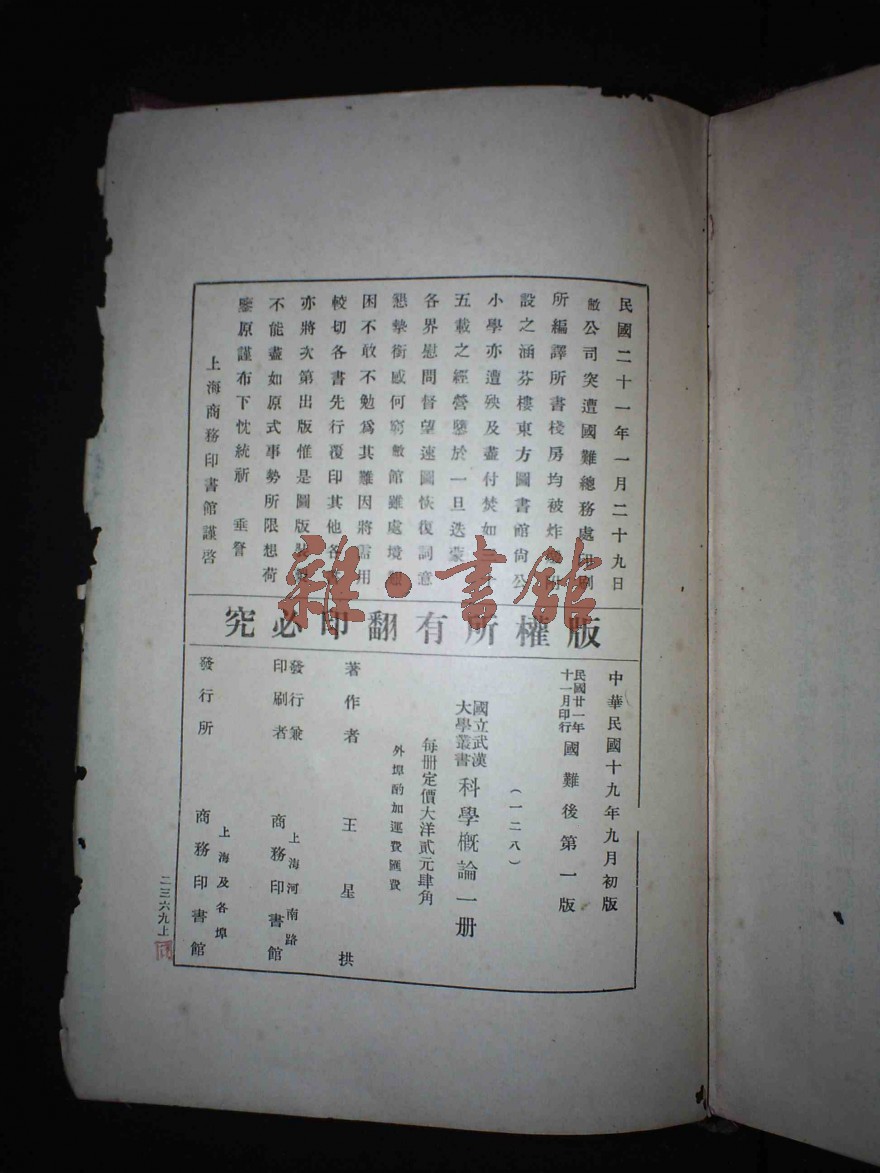 民國二十一年一月二十九日
敝公司突遭國難總務處印刷
所編譯所書棧房均被炸燬附
設之涵芬樓東方圖書館尙公
小學亦遭殃及盡付焚如三十
五載之經營隳於一旦迭蒙
各界慰問督望速圖恢復詞意
懇摯銜感何窮敝館雖處境艱
困不敢不勉爲其難因將需用
較切各書先行覆印其他各書
亦將次第出版惟是圖版裝製
不能盡如原式事勢所限想荷
鑒原謹布下忱統祈 垂詧
上海商務印書館謹啓
版權所有翻印必究
中華民國十九年九月初版
民國廿一年
十一月印行
國難後第一版
(一二八)
國立武漢
大學叢書
科學概論一册
每册定價大洋貳元肆角
外埠酌加運費匯費
著作者 王星拱
發行兼
印刷者
上海河南路
商務印書館
發行所
上海及各埠
商務印書館
二三六九上
雜·書館